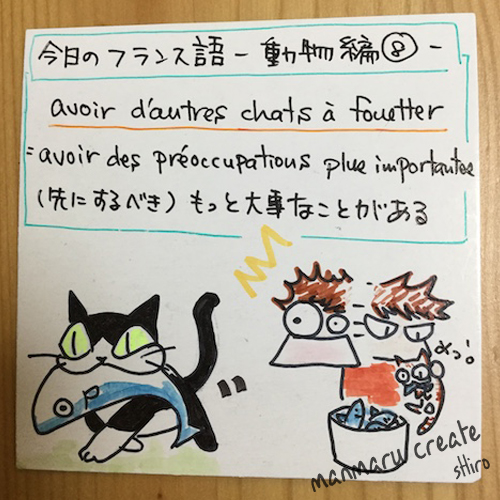 今日のフランス語 - 動物編⑧ -
avoir d'autres chats à fouetter
= avoir des préoccupations plus importantes
(先にするべき) もっと大事なことがある
めっ!
manmaru create
sHiro